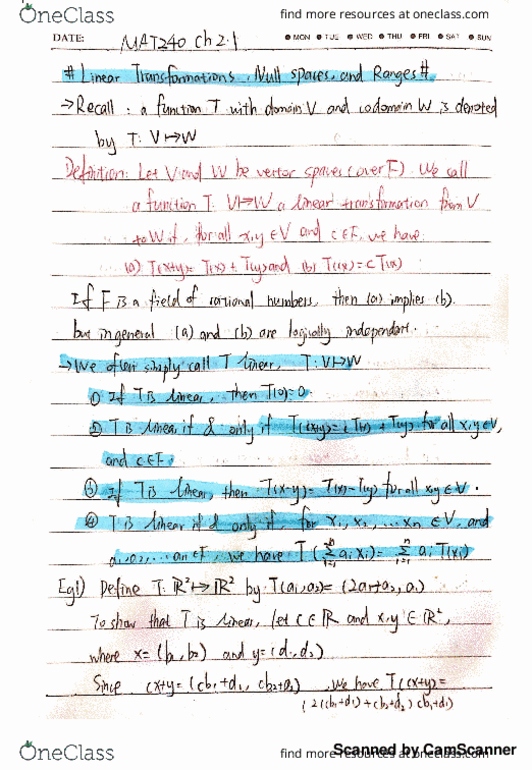 OneClass
find more resources at oneclass.com
DATE: MAT240 Ch 2.1 MON TUE WED THU FRI SAT SUN
# Linear Transformations, Null spaces, and Ranges #
→ Recall : a function T with domain V and codomain W is denoted
by T: V↦W
Definition: Let V and W be vector spaces (over F). We call
a function T: V↦W a linear transformation from V
to W if, for all x,y ∈V and c∈F, we have:
(a) T(x+y)= T(x) + T(y) and (b) T(cx)= c T(x)
If F is a field of rational numbers, then (a) implies (b).
but in general (a) and (b) are logically independent.
→ We often simply call T linear, T: V↦W
① If T is linear, then T(0)=0.
② T is linear if & only if T(cx+y)= cT(x) + T(y) for all x,y ∈V,
and c∈F.
③ If T is linear, then T(x-y)= T(x)-T(y) for all x,y ∈ V.
④ T is linear if & only if, for x₁, x₂, ... xn ∈ V, and
a₁, a₂, ... an ∈F, we have T(∑ᵢ₌₁ⁿ aᵢ xᵢ)= ∑ᵢ₌₁ⁿ aᵢ T(xᵢ)
[eg1) Define T: ℝ²↦ℝ² by T(a₁,a₂)= (2a₁+a₂, a₁)
To show that T is linear, let c∈ℝ and x,y ∈ ℝ²,
where x= (b₁, b₂) and y= (d₁, d₂)
Since cx+y= (cb₁+d₁, cb₂+d₂) we have T(cx+y)=
(2(cb₁+d₁) + cb₂+d₂, cb₁+d₁)
OneClass
find more resources at oneclass.com
Scanned by CamScanner